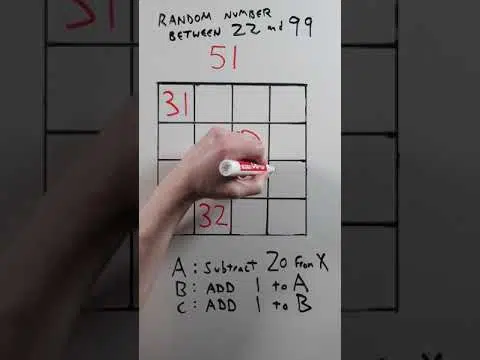 RANDOM NUMBER
BETWEEN 22 and 99
51
31
32
A: Subtract 20 From X
B: ADD 1 to A
C: ADD 1 to B